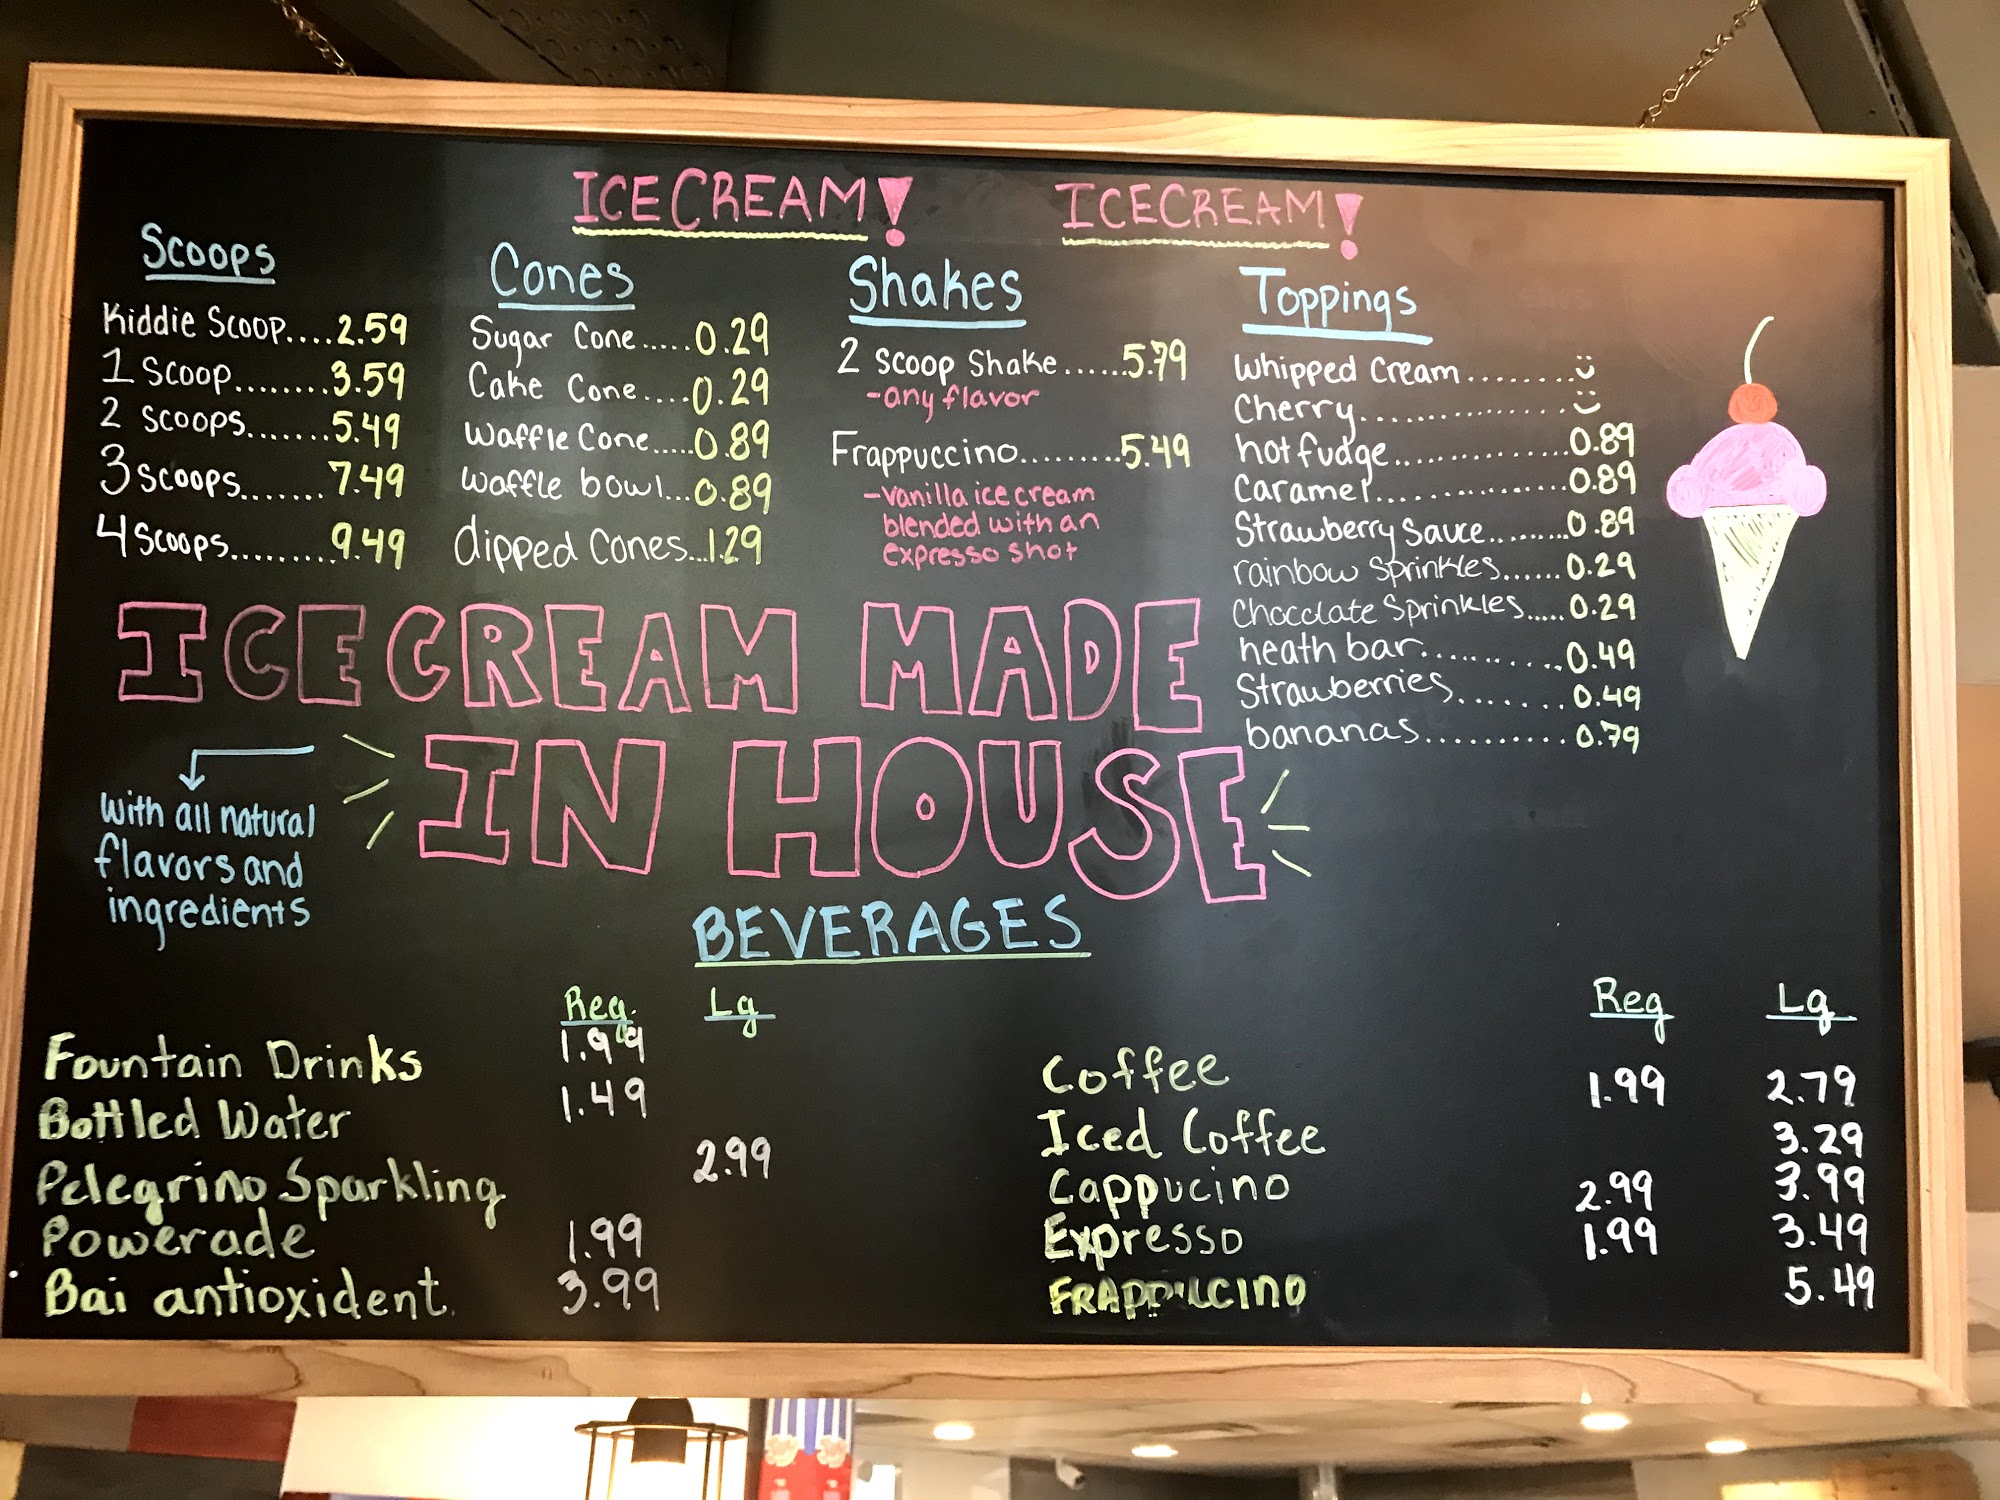 ICE CREAM! ICE CREAM!
Scoops
Kiddie Scoop....2.59
1 Scoop........3.59
2 Scoops.......5.49
3 Scoops.......7.49
4 Scoops.........9.49
Cones
Sugar Cone.....0.29
Cake Cone....0.29
Waffle Cone.....0.89
waffle bowl...0.89
dipped Cones...1.29
Shakes
2 Scoop Shake......5.79
-any flavor
Frappuccino.........5.49
-vanilla ice cream
blended with an
expresso shot
Toppings
Whipped Cream........
Cherry...............
hot fudge..............0.89
Caramel...............0.89
Strawberry Sauce.........0.89
rainbow Sprinkles......0.29
Chocolate Sprinkles.....0.29
heath bar...........0.49
Strawberries.......0.49
bananas..........0.79
ICE CREAM MADE
IN HOUSE
with all natural
flavors and
ingredients
BEVERAGES
Reg. Lg
Fountain Drinks 1.99
Bottled Water 1.49
Pelegrino Sparkling 2.99
Powerade 1.99
Bai antioxident. 3.99
Reg Lg
Coffee 1.99 2.79
Iced Coffee 3.29
Cappucino 2.99 3.99
Expresso 1.99 3.49
FRAPPUCCINO 5.49